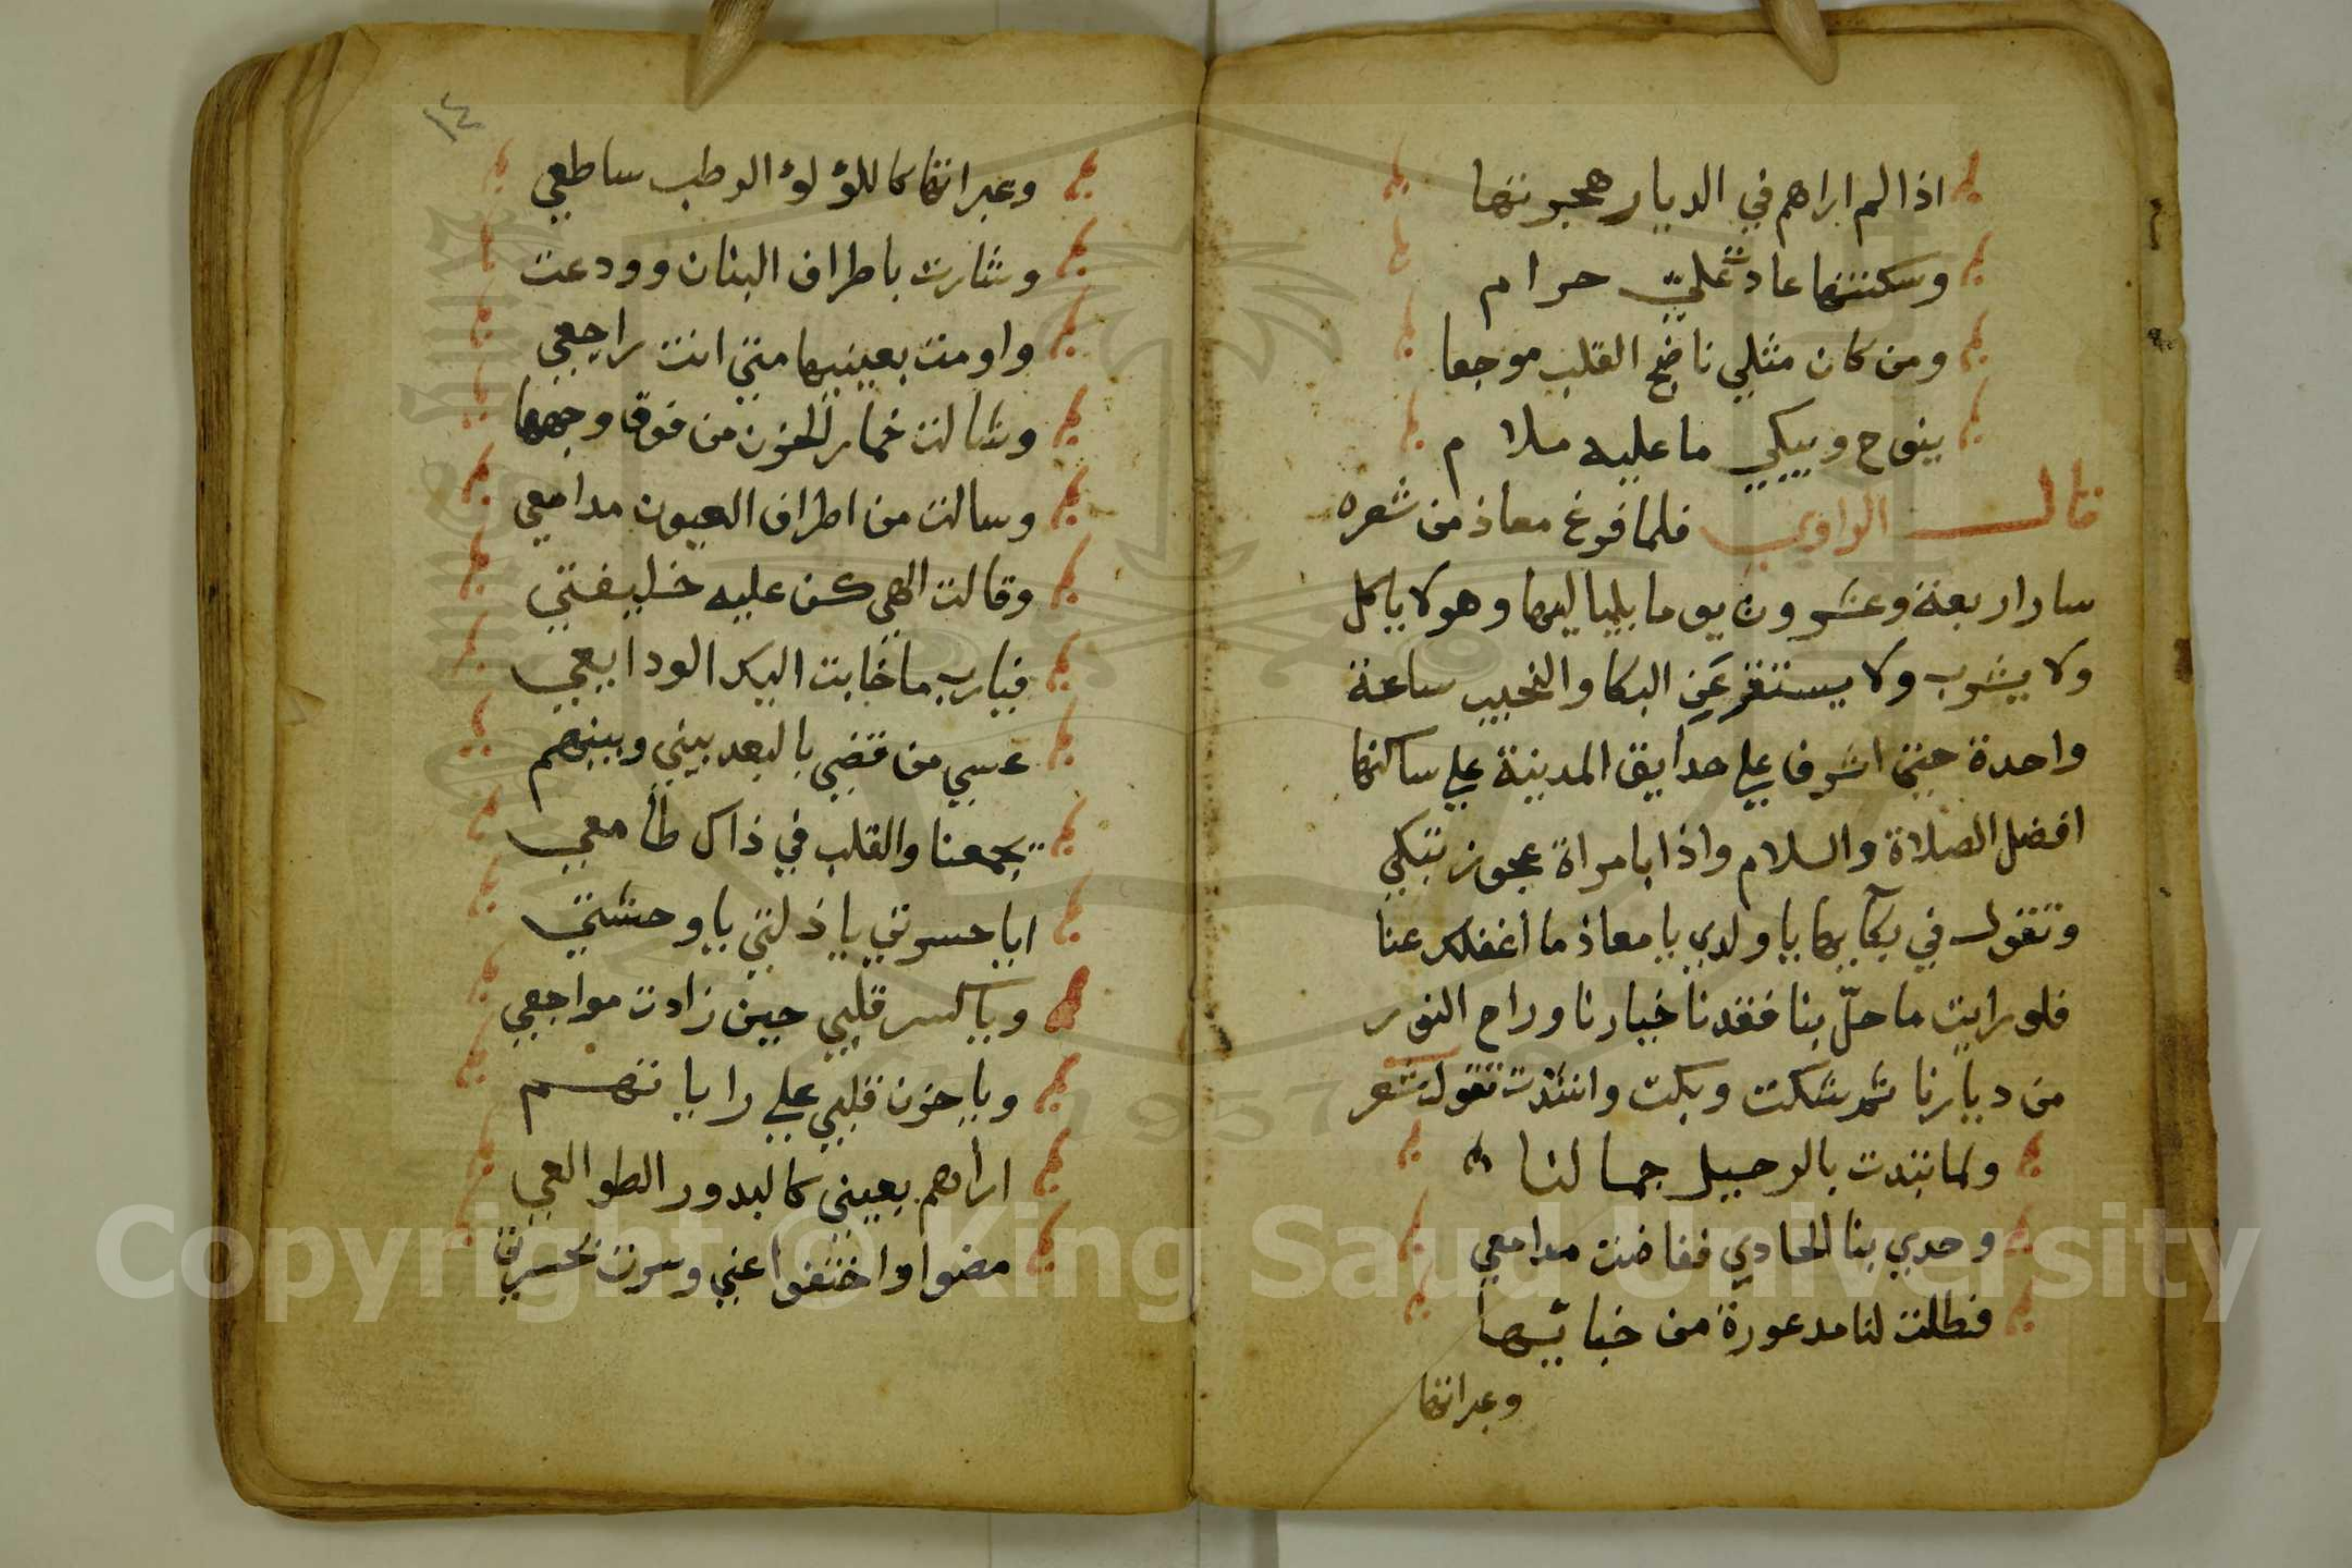 اذا لم اراهم في الديار هجرتها
وسكنتها عادت علي حرام
ومن كان مثلي ناضح القلب موجعا
ينوح ويبكي ما عليه ملام
قال الراوي فلما فرغ معاذ من شعره
سار اربعة وعشرون يوما بلياليها وهو لا ياكل
ولا يشرب ولا يستقر عن البكا والنحيب ساعة
واحدة حتى اشرف علي حدايق المدينة علي ساكنها
افضل الصلاة والسلام واذا بامراة عجوز تبكي
وتقول في بكآيها يا ولدي يا معاذ ما اغفلك عنا
فلو رايت ما حلّ بنا فقدنا خيارنا وراح النور
من ديارنا ثم شكت وبكت وانشدت تقول شعر
ولما تبدت بالرحيل جمالنا
وحدي بنا الحادي ففاضت مدامعي
فطلت لنا مدعورة من خبائها
وعبراتها
١٤
وعبراتها كاللؤلؤ الرطب ساطعي
وشارت باطراف البنان وودعت
واومت بعينيها متي انت راجعي
وشالت خمار الحزن من فوق وجهها
وسالت من اطراف العيون مدامعي
وقالت الهي كن عليه خليفتي
فيا رب ما خابت اليك الودايعي
عسي من قضي بالبعد بيني وبينهم
يجمعنا والقلب في ذاك طامعي
ايا حسرتي يا ذلتي يا وحشتي
ويا كسر قلبي حين زادت مواجعي
ويا حزن قلبي علي راياتهم
اراهم بعيني كالبدور الطوالعي
مضوا واختفوا عني وسرت بحسرتي
Copyright © King Saud University
1957